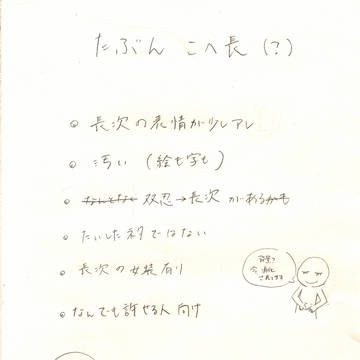 たぶん こへ長(?)
長次の表情が少しアレ
汚い (絵も字も)
なんとなく 双忍→長次 があるかも
たいしたネタではない
長次の女装有り
なんでも許せる人向け